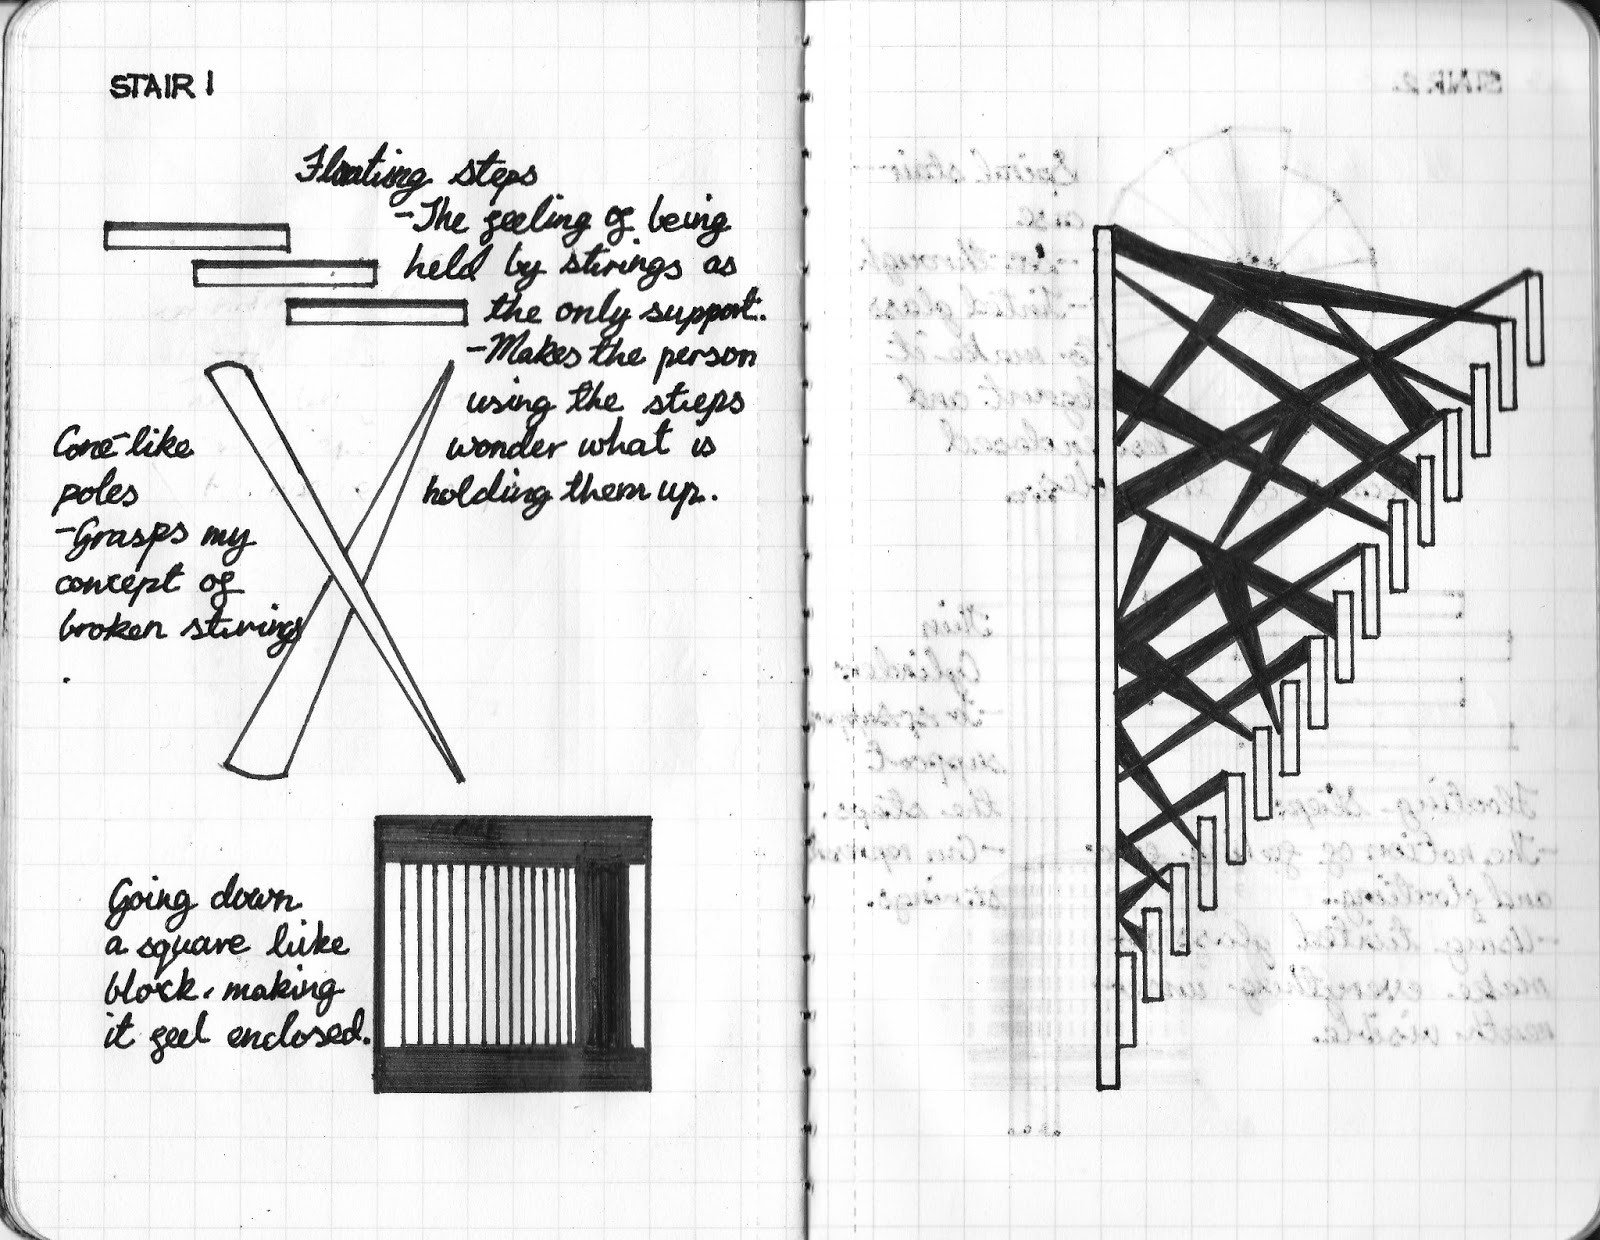 STAIR 1
Floating steps
-The feeling of being
held by strings as
the only support.
-Makes the person
using the steps
wonder what is
holding them up.
Cone-like
poles
-Grasps my
concept of
broken strings
Going down
a square like
block, making
it feel enclosed.